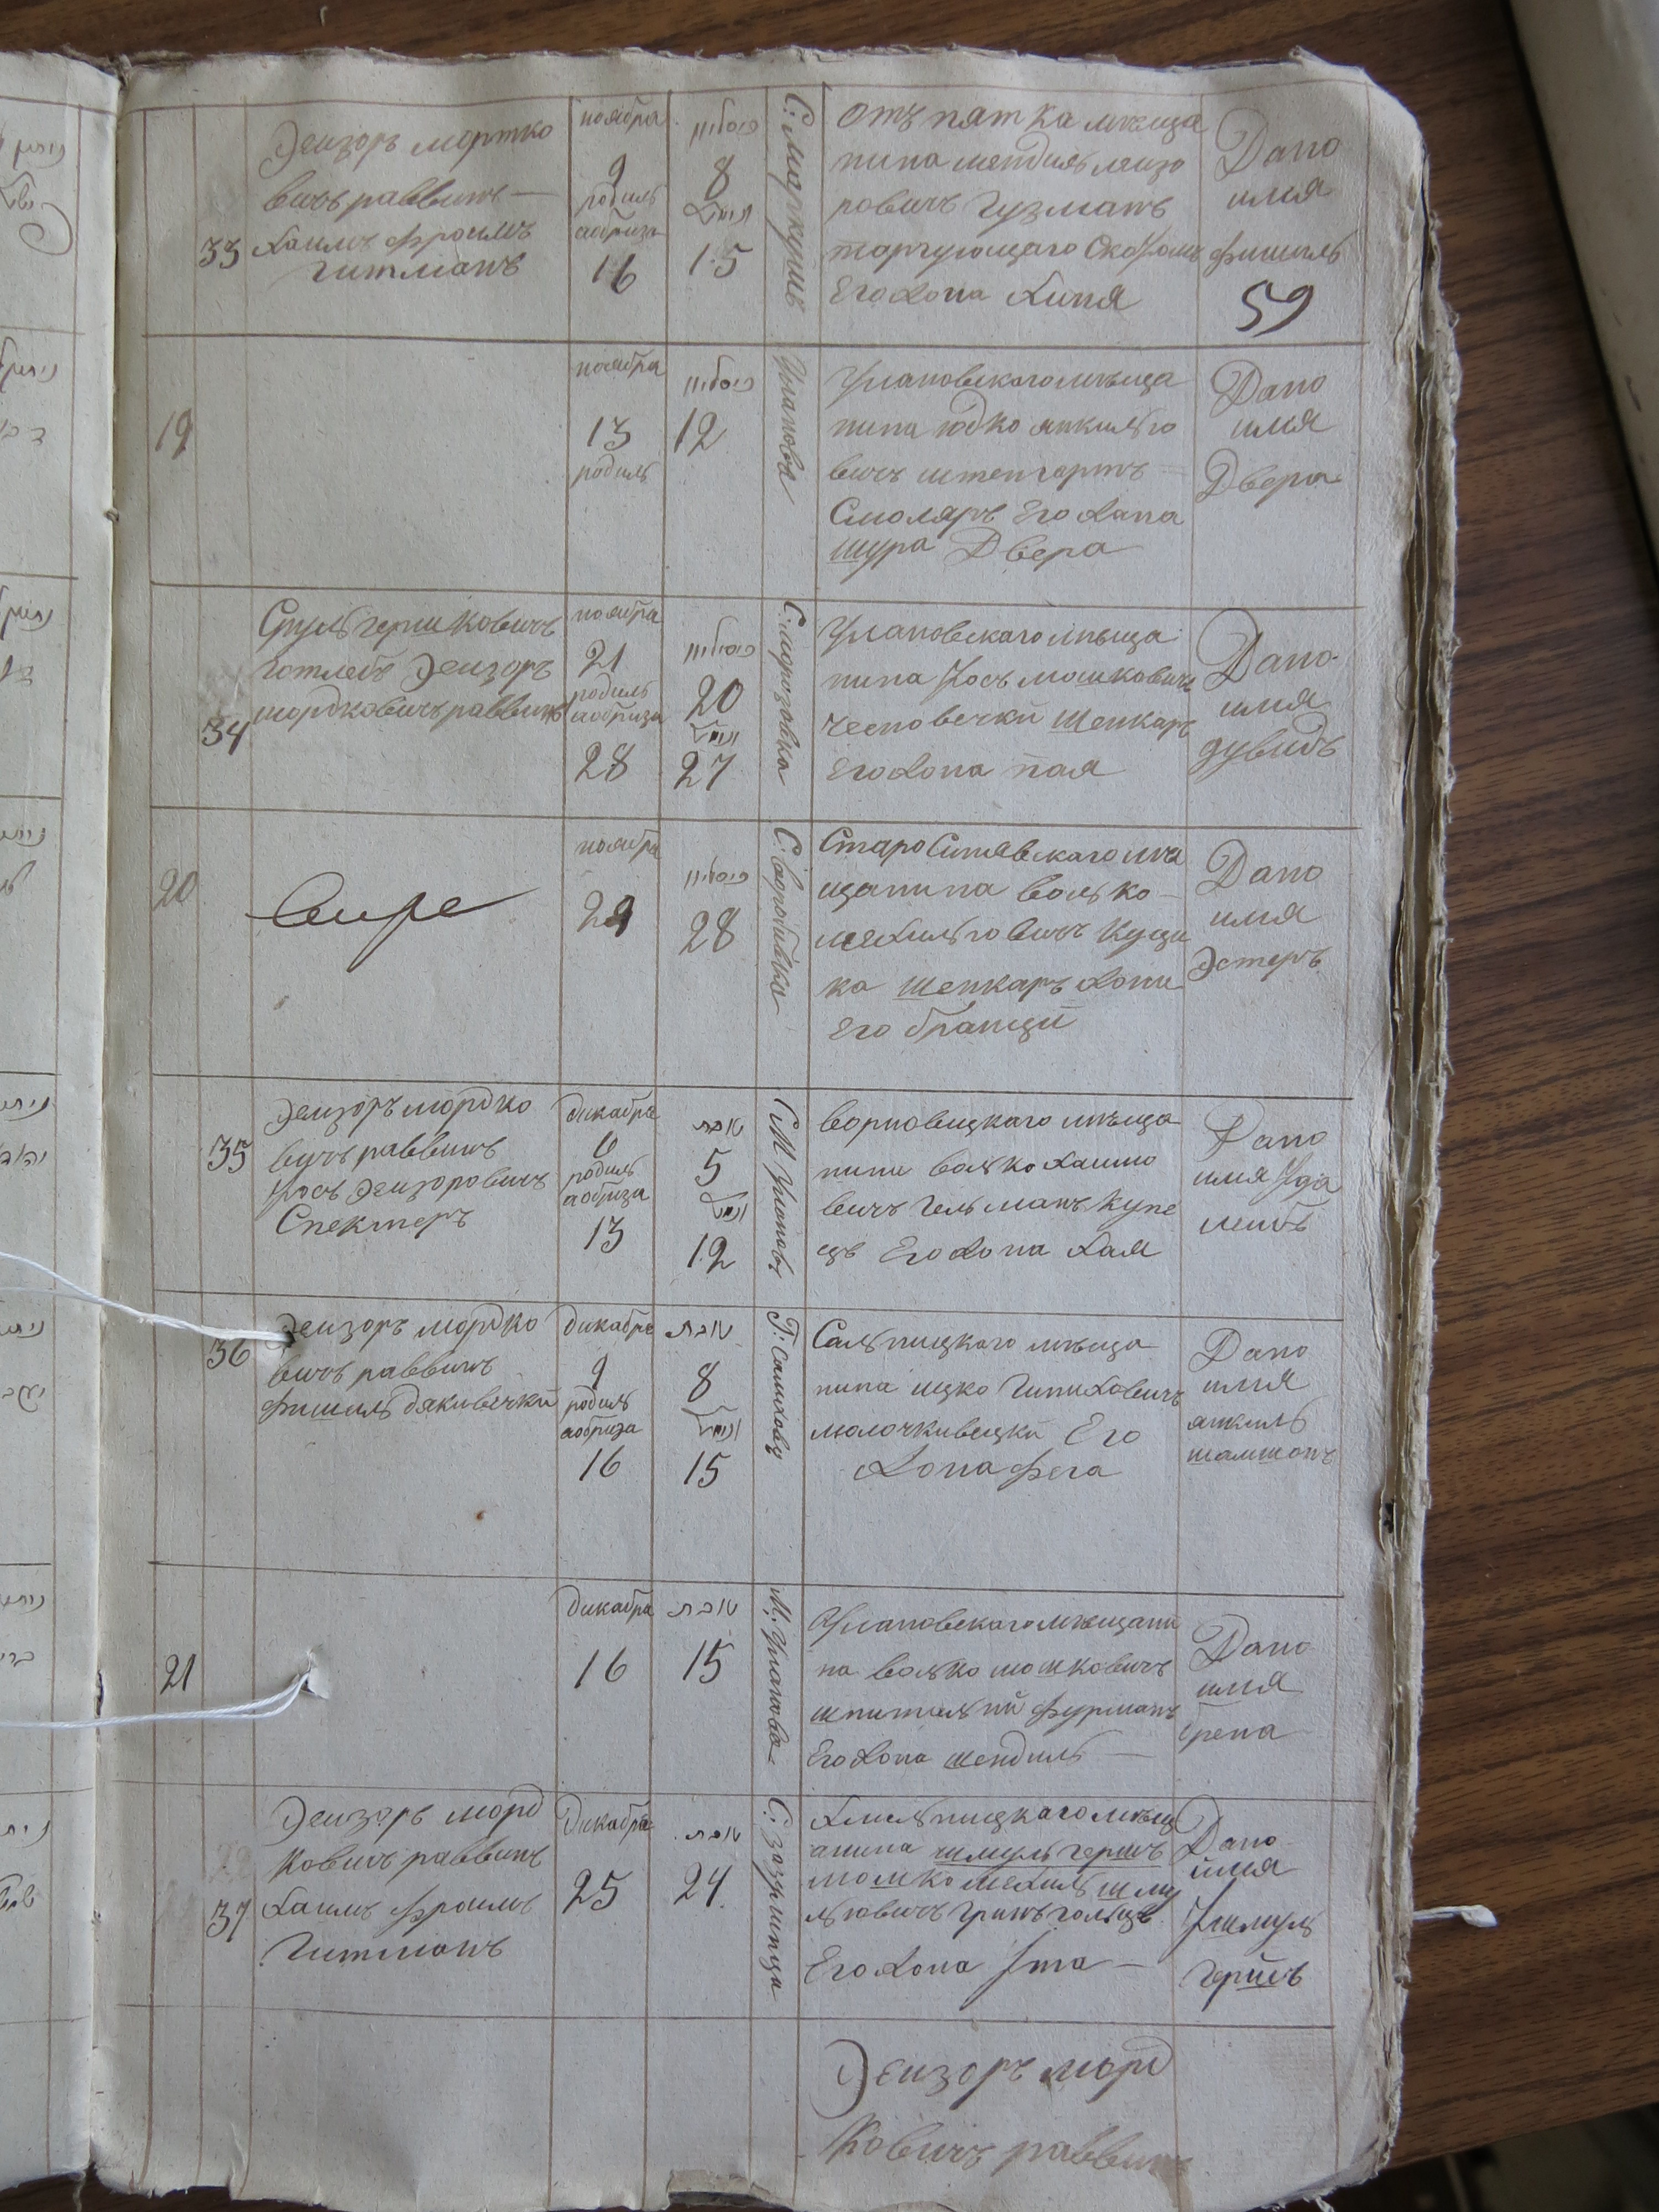 33
Эеизоръ мортко
вичъ раввинъ —
Хаимъ фроимъ
гитманъ
ноября
9
родилъ
аобриза
16
כיסליו
8
15
С: маркушъ
Отъ пятка мѣща
нина мендиль леизо
ровичъ Гузманъ
торгующаго
Его Жона Хиня
Дано
имя
фишиль
59
19
ноября
13
родиль
כיסליו
12
Улановѣ
Улановскаго мѣща
нина юдко янкильго
вичъ штенгартъ —
Смоляръ Его Жана
шура Двера
Дано
имя
Двера
34
Сруль гершковичъ
готлебъ Эеизоръ
мордковичъ раввинъ
ноября
21
родиль
аобриза
28
כיסליו
20
27
С: морозовка
Улановскаго мѣща
нина Иосъ мошковичъ
чесновечкй Шенкаръ
Его Жона пая
Дано
имя
дувидъ
20
ноября
29
כיסליו
28
Старо Синявскаго мѣ
щанина волько —
мехильговичъ Куци
ка шенкаръ Жони
Его бранци
Дано
имя
Эстеръ
35
Эеизоръ мордко
вичъ раввинъ
Иосъ Эеизоровичъ
Спекторъ
дикабря
6
родиль
аобриза
13
טבת
5
12
С М Улановъ
ворновицкаго мѣща
нина волко Хаимо
вичъ гельманъ купе
цъ Его Жона Хая
Дано
имя Иуда
леибъ
36
Эеизоръ мордко
вичъ раввинъ
фишиль дяковечкй
дикабря
9
родиль
аобриза
16
טבת
8
15
Г: Салиховъ
Сальницкаго мѣща
нина ицко
молочкивецки Его
Жона фега
Дано
имя
янкиль
шамшонъ
21
дикабря
16
טבת
15
М: Улановѣ
Улановскаго мѣщани
на волко мошковичъ
шпитильни фурманъ
Его Жона шендиль —
Дано
имя
брена
37
Эеизоръ морд
ковичъ раввинъ
Хаимъ фроимъ
гитманъ
Дикабря
25
טבת
24
Хмельницкаго мѣщ
анина шмуль гершъ
мошко мехиль шму
льговичъ
Его Жона Ита —
Дано
имя
шмуль
гершъ
Эеизоръ морд
ковичъ раввинъ